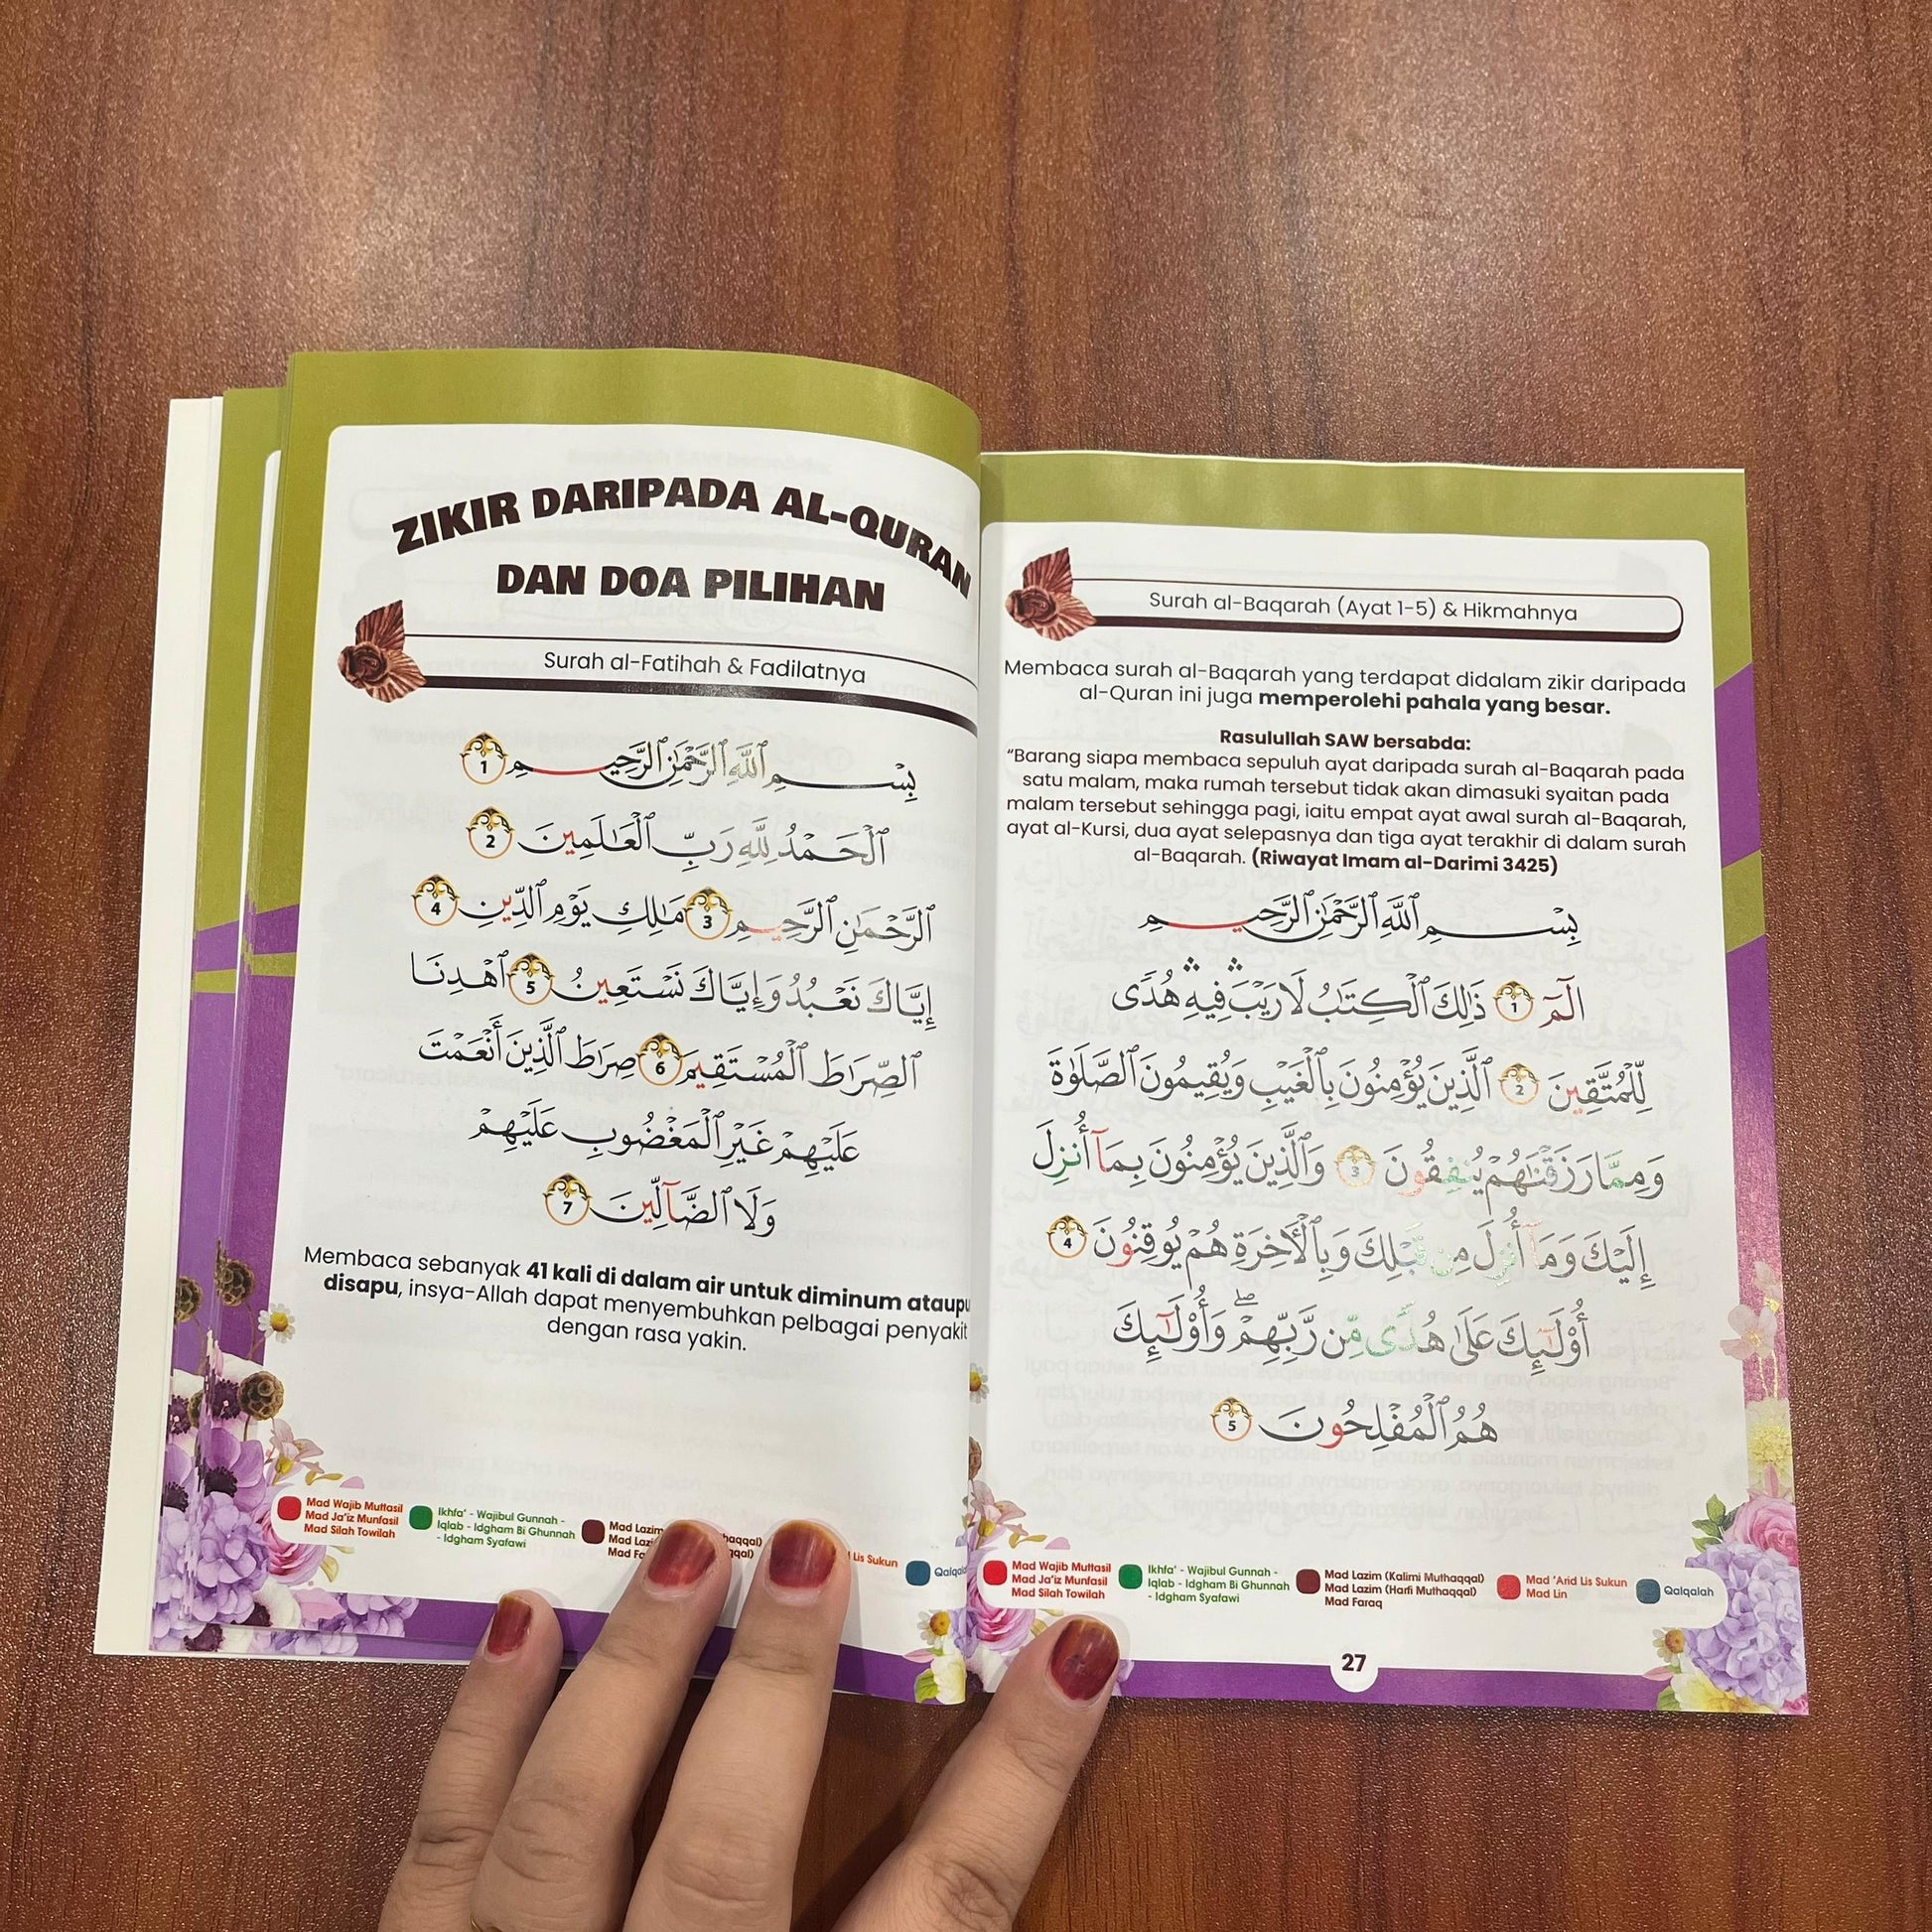 ZIKIR DARIPADA AL-QURAN
DAN DOA PILIHAN
Surah al-Fatihah & Fadilatnya
بِسْمِ ٱللَّهِ ٱلرَّحْمَٰنِ ٱلرَّحِيمِ 1
ٱلْحَمْدُ لِلَّهِ رَبِّ ٱلْعَٰلَمِينَ 2
ٱلرَّحْمَٰنِ ٱلرَّحِيمِ 3 مَٰلِكِ يَوْمِ ٱلدِّينِ 4
إِيَّاكَ نَعْبُدُ وَإِيَّاكَ نَسْتَعِينُ 5 ٱهْدِنَا
ٱلصِّرَٰطَ ٱلْمُسْتَقِيمَ 6 صِرَٰطَ ٱلَّذِينَ أَنْعَمْتَ
عَلَيْهِمْ غَيْرِ ٱلْمَغْضُوبِ عَلَيْهِمْ
وَلَا ٱلضَّآلِّينَ 7
Membaca sebanyak 41 kali di dalam air untuk diminum ataupu
disapu, insya-Allah dapat menyembuhkan pelbagai penyakit
dengan rasa yakin.
Mad Wajib Muttasil
Mad Ja'iz Munfasil
Mad Silah Towilah
Ikhfa' - Wajibul Gunnah -
Iqlab - Idgham Bi Ghunnah
- Idgham Syafawi
Mad Lazim
Mad
Lis Sukun
Surah al-Baqarah (Ayat 1-5) & Hikmahnya
Membaca surah al-Baqarah yang terdapat didalam zikir daripada
al-Quran ini juga memperolehi pahala yang besar.
Rasulullah SAW bersabda:
"Barang siapa membaca sepuluh ayat daripada surah al-Baqarah pada
satu malam, maka rumah tersebut tidak akan dimasuki syaitan pada
malam tersebut sehingga pagi, iaitu empat ayat awal surah al-Baqarah,
ayat al-Kursi, dua ayat selepasnya dan tiga ayat terakhir di dalam surah
al-Baqarah. (Riwayat Imam al-Darimi 3425)
بِسْمِ ٱللَّهِ ٱلرَّحْمَٰنِ ٱلرَّحِيمِ
الٓمٓ 1 ذَٰلِكَ ٱلْكِتَٰبُ لَا رَيْبَ ۛ فِيهِ ۛ هُدًى
لِّلْمُتَّقِينَ 2 ٱلَّذِينَ يُؤْمِنُونَ بِٱلْغَيْبِ وَيُقِيمُونَ ٱلصَّلَوٰةَ
وَمِمَّا رَزَقْنَٰهُمْ يُنفِقُونَ 3 وَٱلَّذِينَ يُؤْمِنُونَ بِمَآ أُنزِلَ
إِلَيْكَ وَمَآ أُنزِلَ مِن قَبْلِكَ وَبِٱلْءَاخِرَةِ هُمْ يُوقِنُونَ 4
أُو۟لَٰٓئِكَ عَلَىٰ هُدًى مِّن رَّبِّهِمْ ۖ وَأُو۟لَٰٓئِكَ
هُمُ ٱلْمُفْلِحُونَ 5
Mad Wajib Muttasil
Mad Ja'iz Munfasil
Mad Silah Towilah
Ikhfa' - Wajibul Gunnah -
Iqlab - Idgham Bi Ghunnah
- Idgham Syafawi
Mad Lazim (Kalimi Muthaqqal)
Mad Lazim (Harfi Muthaqqal)
Mad Faraq
Mad 'Arid Lis Sukun
Mad Lin
Qalqalah
27